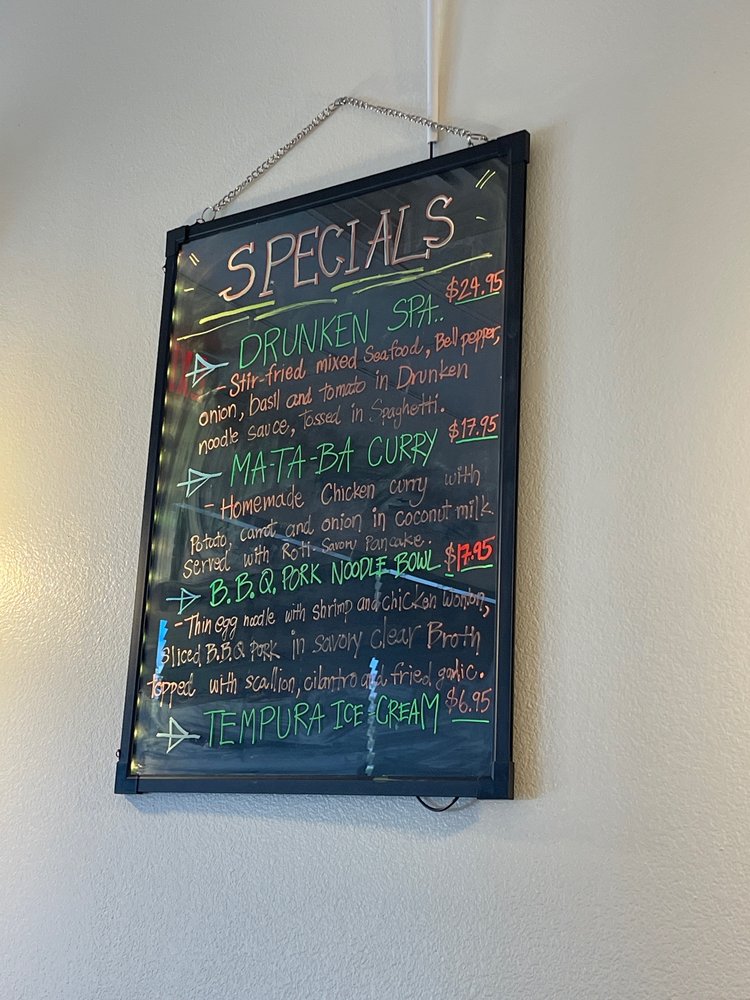 SPECIALS
$24.95
DRUNKEN SPA..
- Stir-fried mixed Seafood, Bell pepper,
onion, basil and tomato in Drunken
noodle sauce, Tossed in Spaghetti.
$17.95
MA-TA-BA CURRY
- Homemade Chicken curry with
Potato, carrot and onion in coconut milk
served with Roti-Savory Pancake.
B.B.Q. PORK NOODLE BOWL $17.95
- Thin egg noodle with shrimp and chicken Wonton,
sliced B.B.Q PORK in savory clear Broth
topped with scallion, cilantro and fried garlic.
$6.95
TEMPURA ICE-CREAM